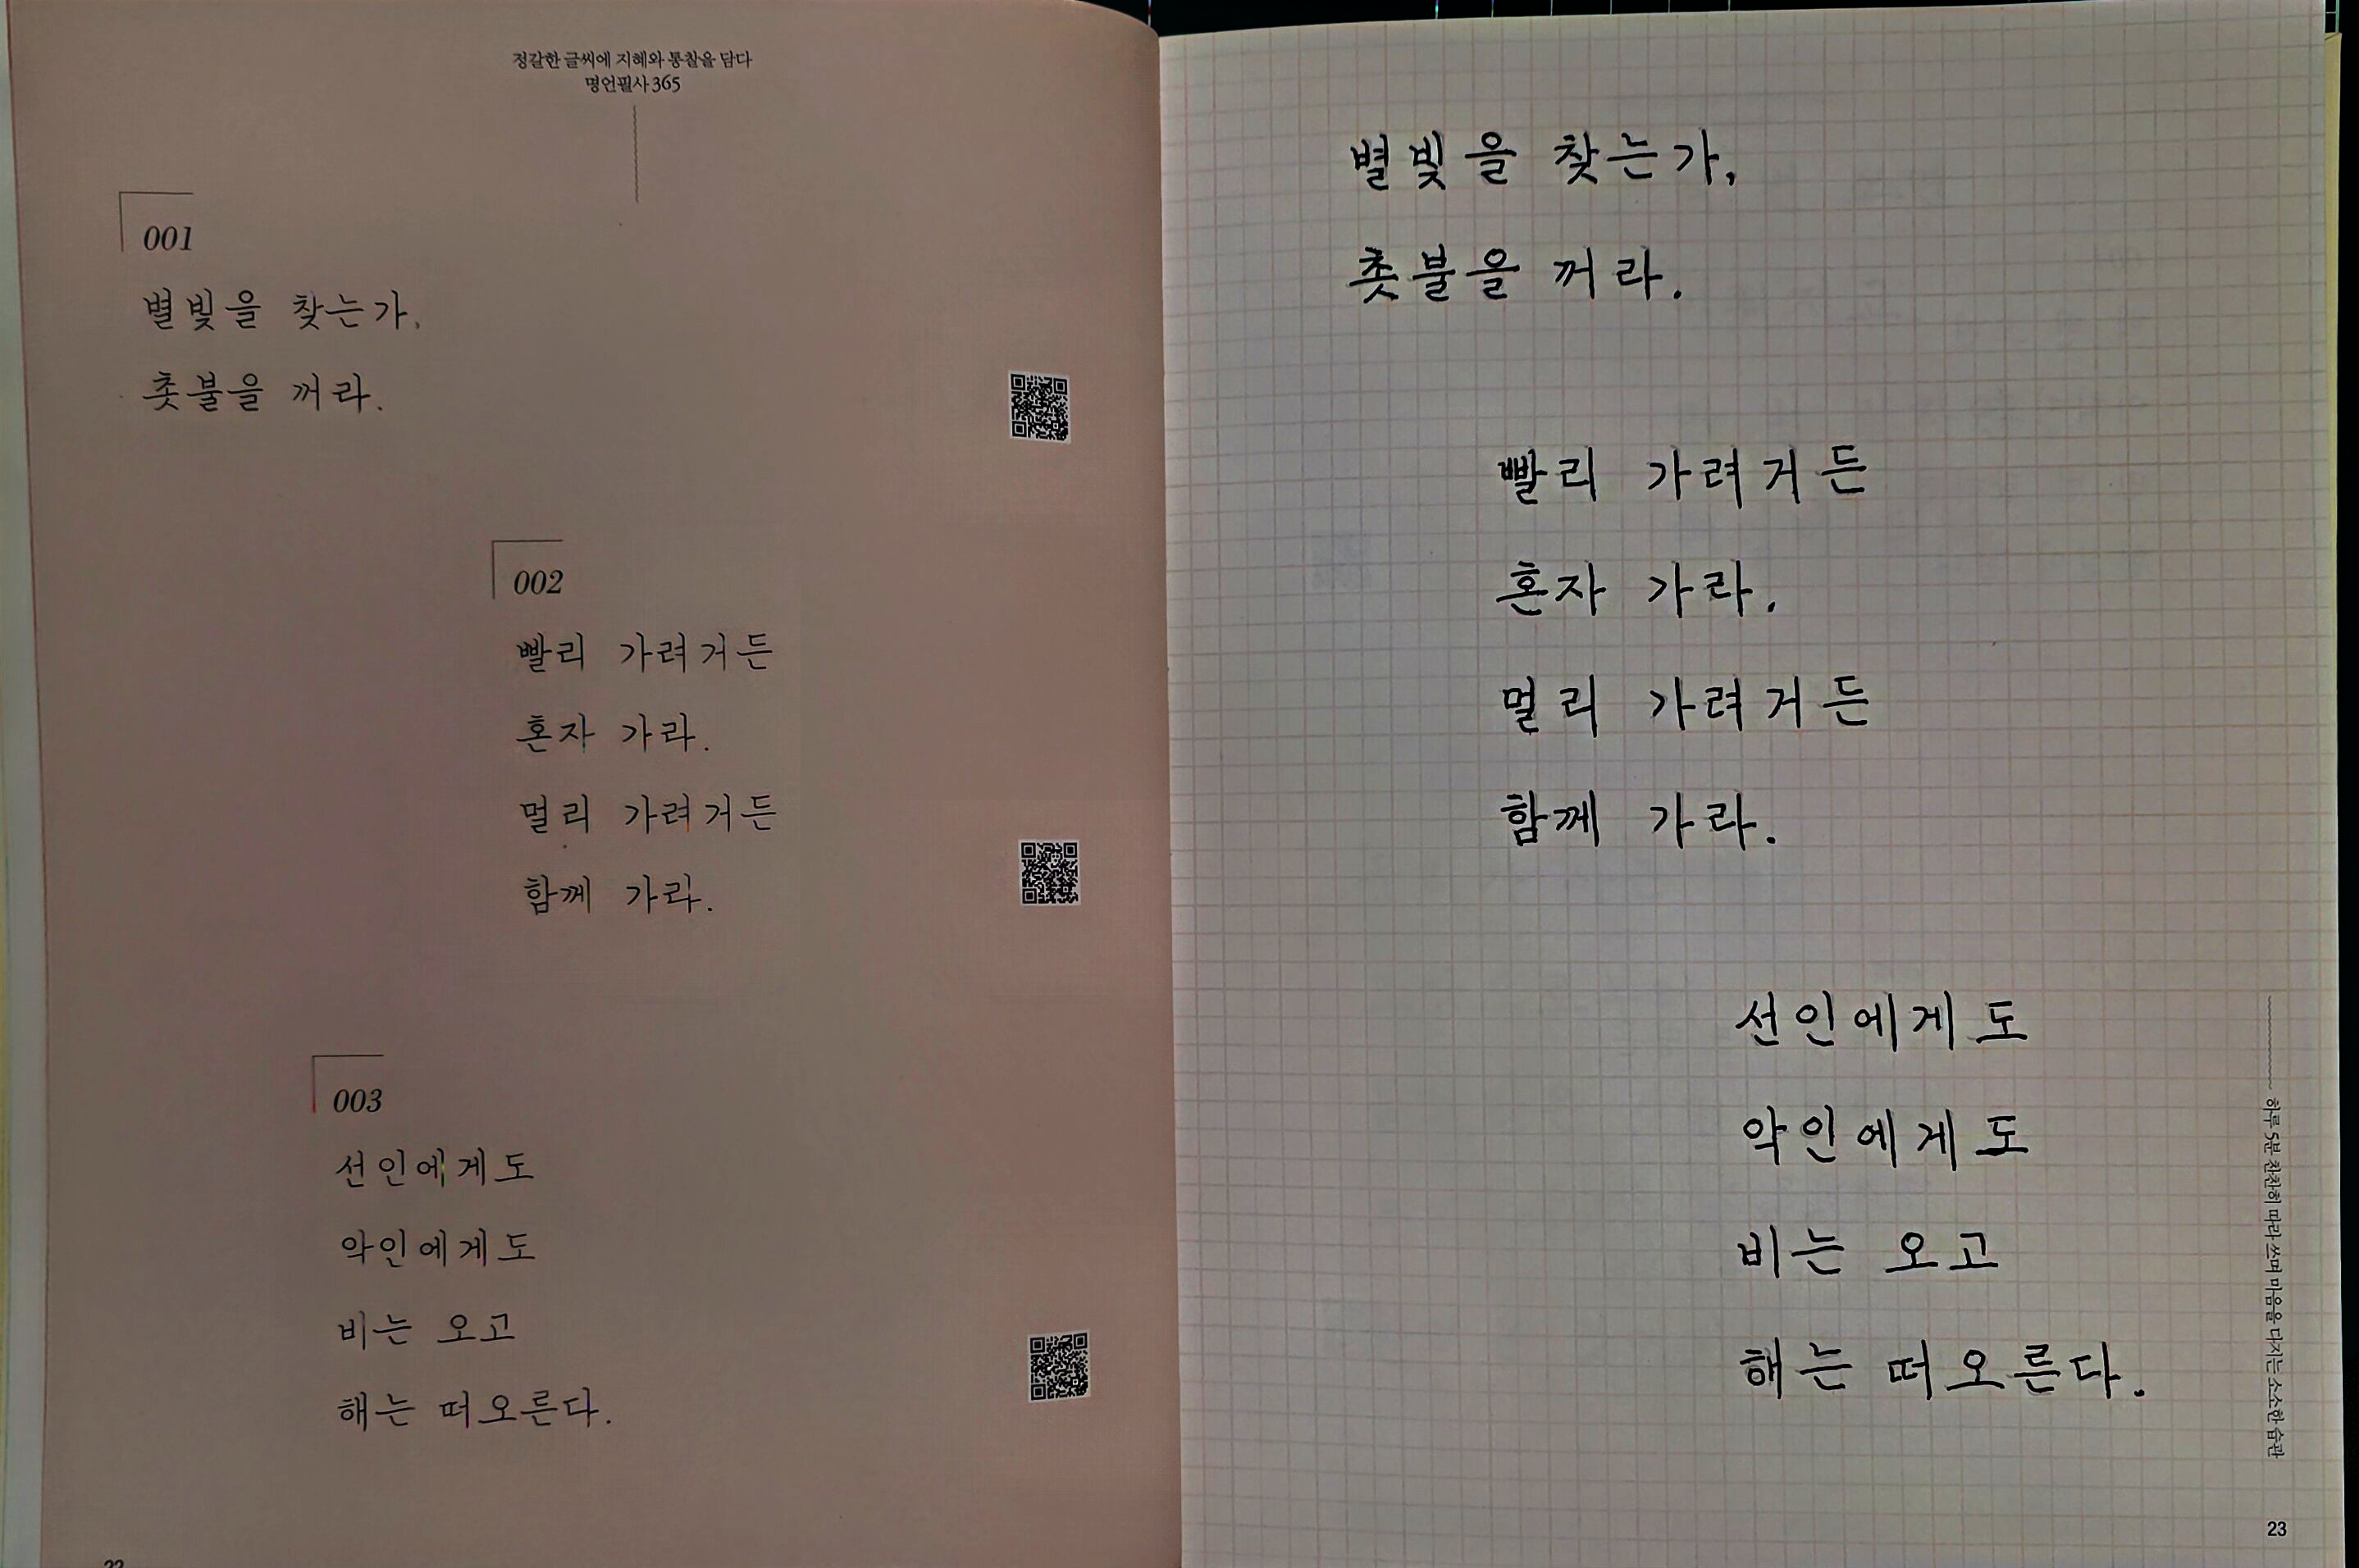 정갈한 글씨에 지혜와 통찰을 담다
명언필사 365
001
별빛을 찾는가,
촛불을 꺼라.
002
빨리 가려거든
혼자 가라.
멀리 가려거든
함께 가라.
003
선인에게도
악인에게도
비는 오고
해는 떠오른다.
22
별빛을 찾는가,
촛불을 꺼라.
빨리 가려거든
혼자 가라.
멀리 가려거든
함께 가라.
선인에게도
악인에게도
비는 오고
해는 떠오른다.
하루 5분 찬찬히 따라 쓰며 마음을 다지는 소소한 습관
23